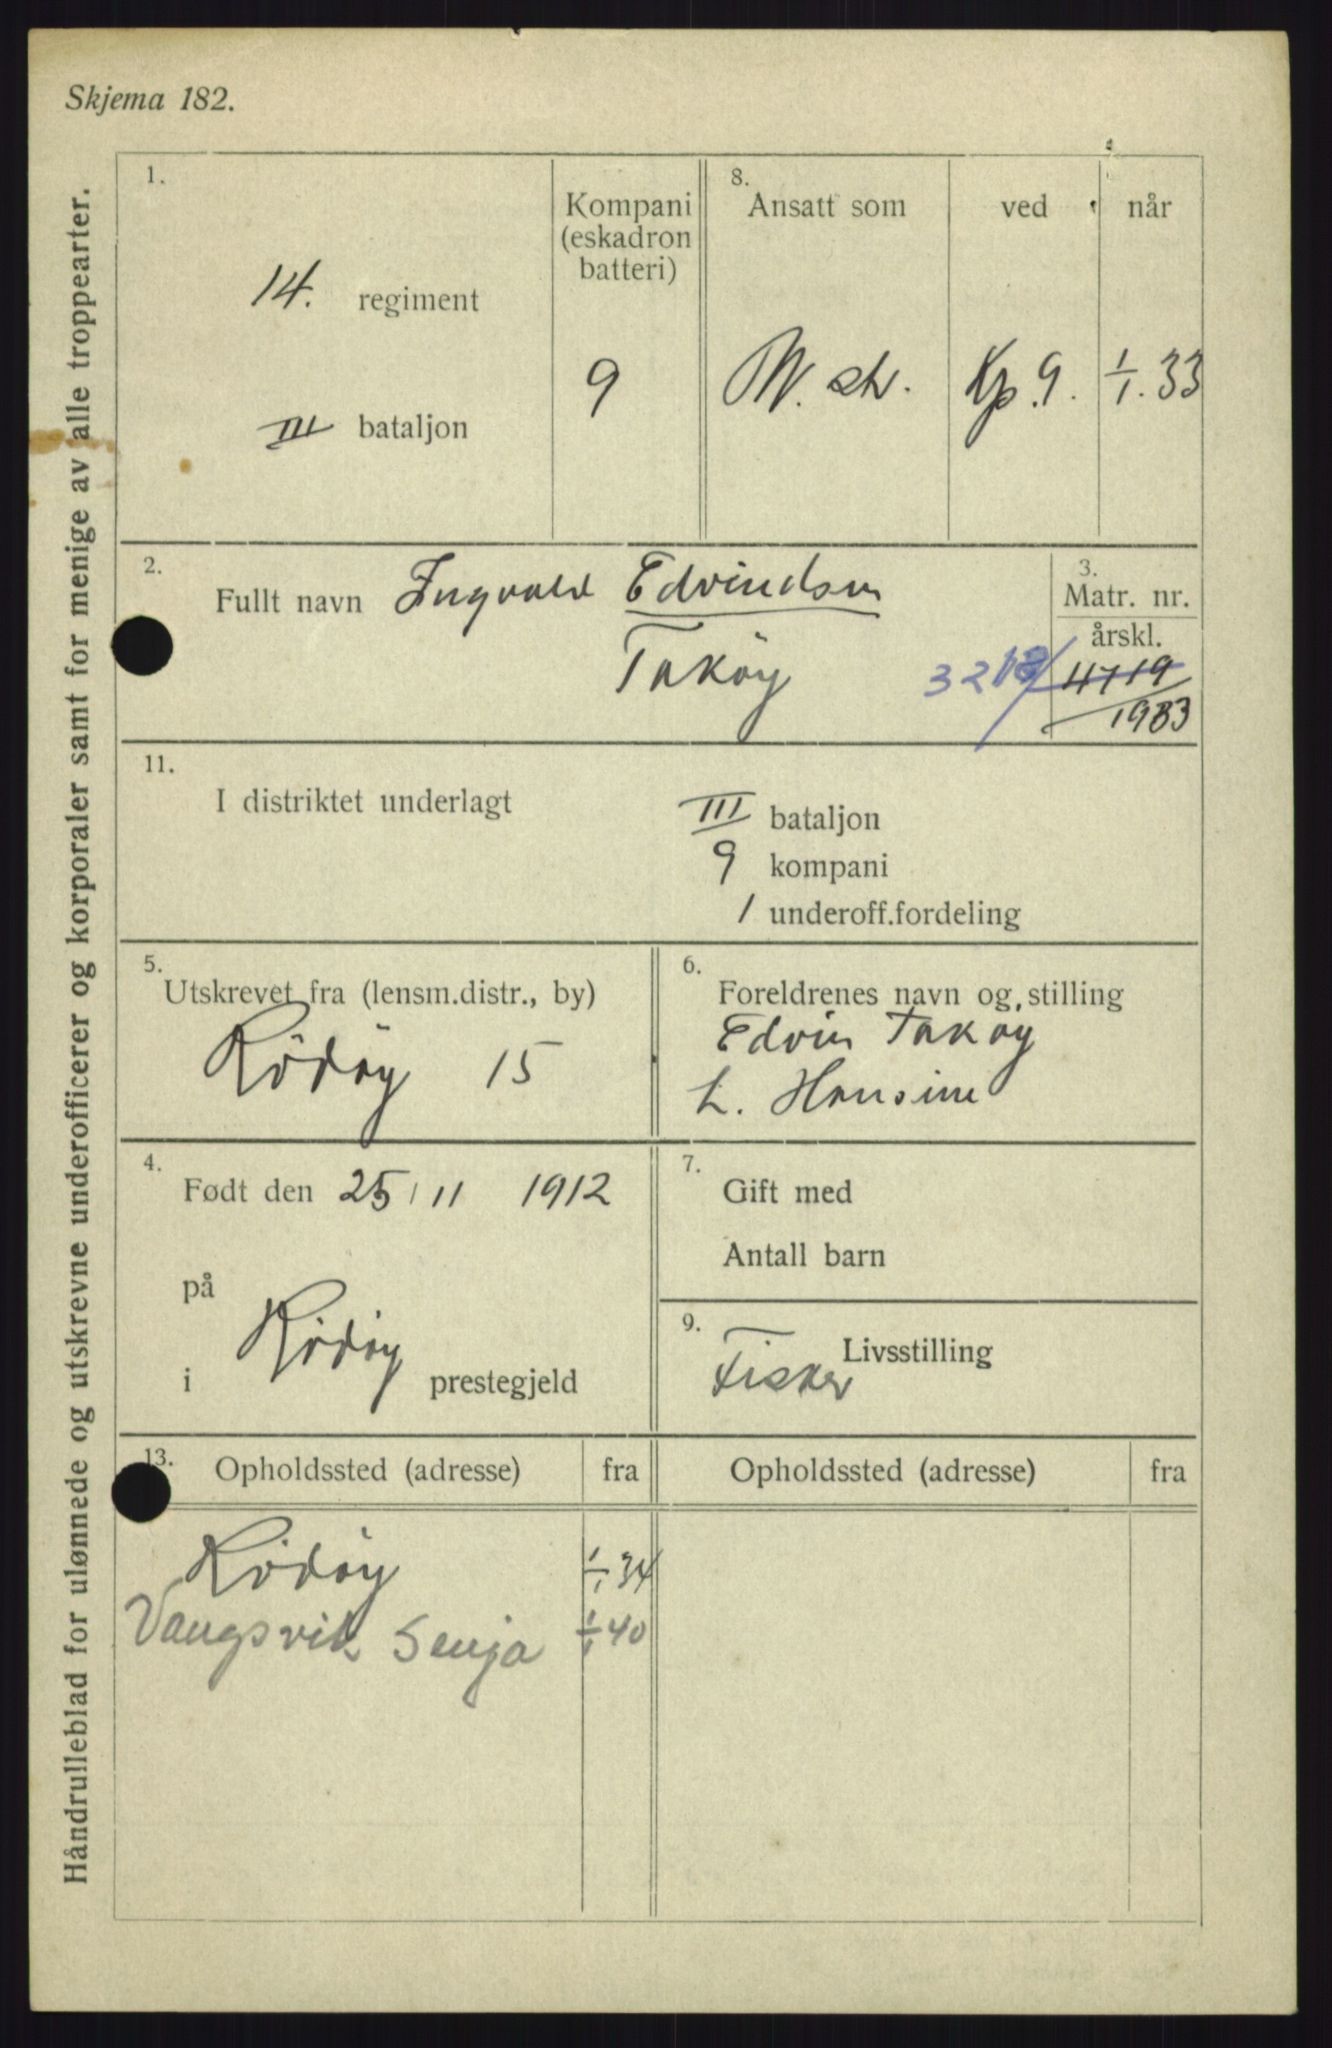 Skjema 182.
Håndrulleblad for ulønnede og utskrevne underofficerer og korporaler samt for menige av alle troppearter.
1.
14. regiment
III bataljon
Kompani
(eskadron
batteri)
9
8.
Ansatt som
ved
når
W. ch.
Kp. 9.
1/1. 33
2.
Fullt navn Ingvald Edvindsen
Takøy
3.
Matr. nr.
årskl.
4719
1933
11.
I distriktet underlagt
III bataljon
9 kompani
1 underoff.fordeling
5.
Utskrevet fra (lensm.distr., by)
Rödöy 15
6.
Foreldrenes navn og stilling
Edvin Takøy
h. Hansine
4.
Født den 25/11 1912
på
i Rödöy prestegjeld
7.
Gift med
Antall barn
9.
Livsstilling
Fisker
13.
Opholdssted (adresse) fra
Rödöy 1/1 34
Vangsvik Senja 1/1 40
Opholdssted (adresse) fra